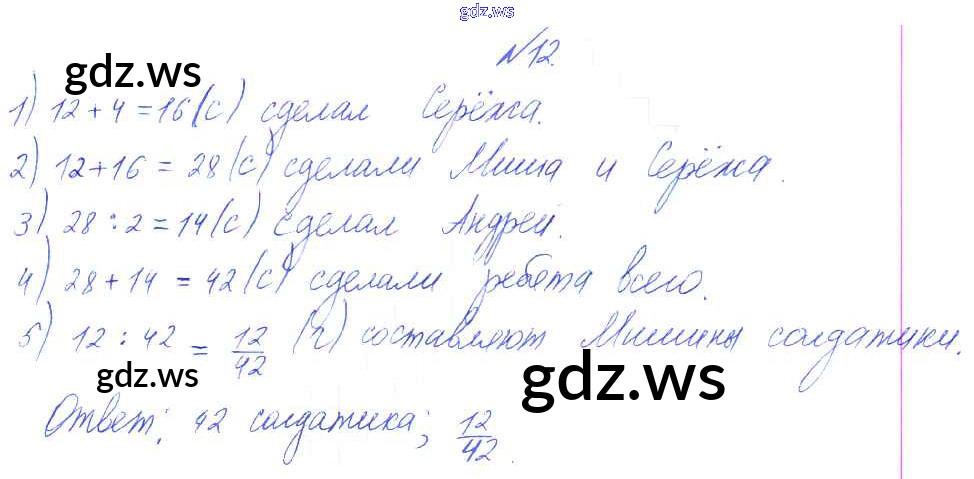 gdz.ws
№12.
gdz.ws
1) 12 + 4 = 16 (с) сделал Серёжа.
2) 12 + 16 = 28 (с) сделали Миша и Серёжа.
3) 28 : 2 = 14 (с) сделал Андрей.
4) 28 + 14 = 42 (с) сделали ребята всего.
5) 12 : 42 = 12/42 (ч) составляют Мишины солдатики.
gdz.ws
gdz.ws
Ответ: 42 солдатика; 12/42.